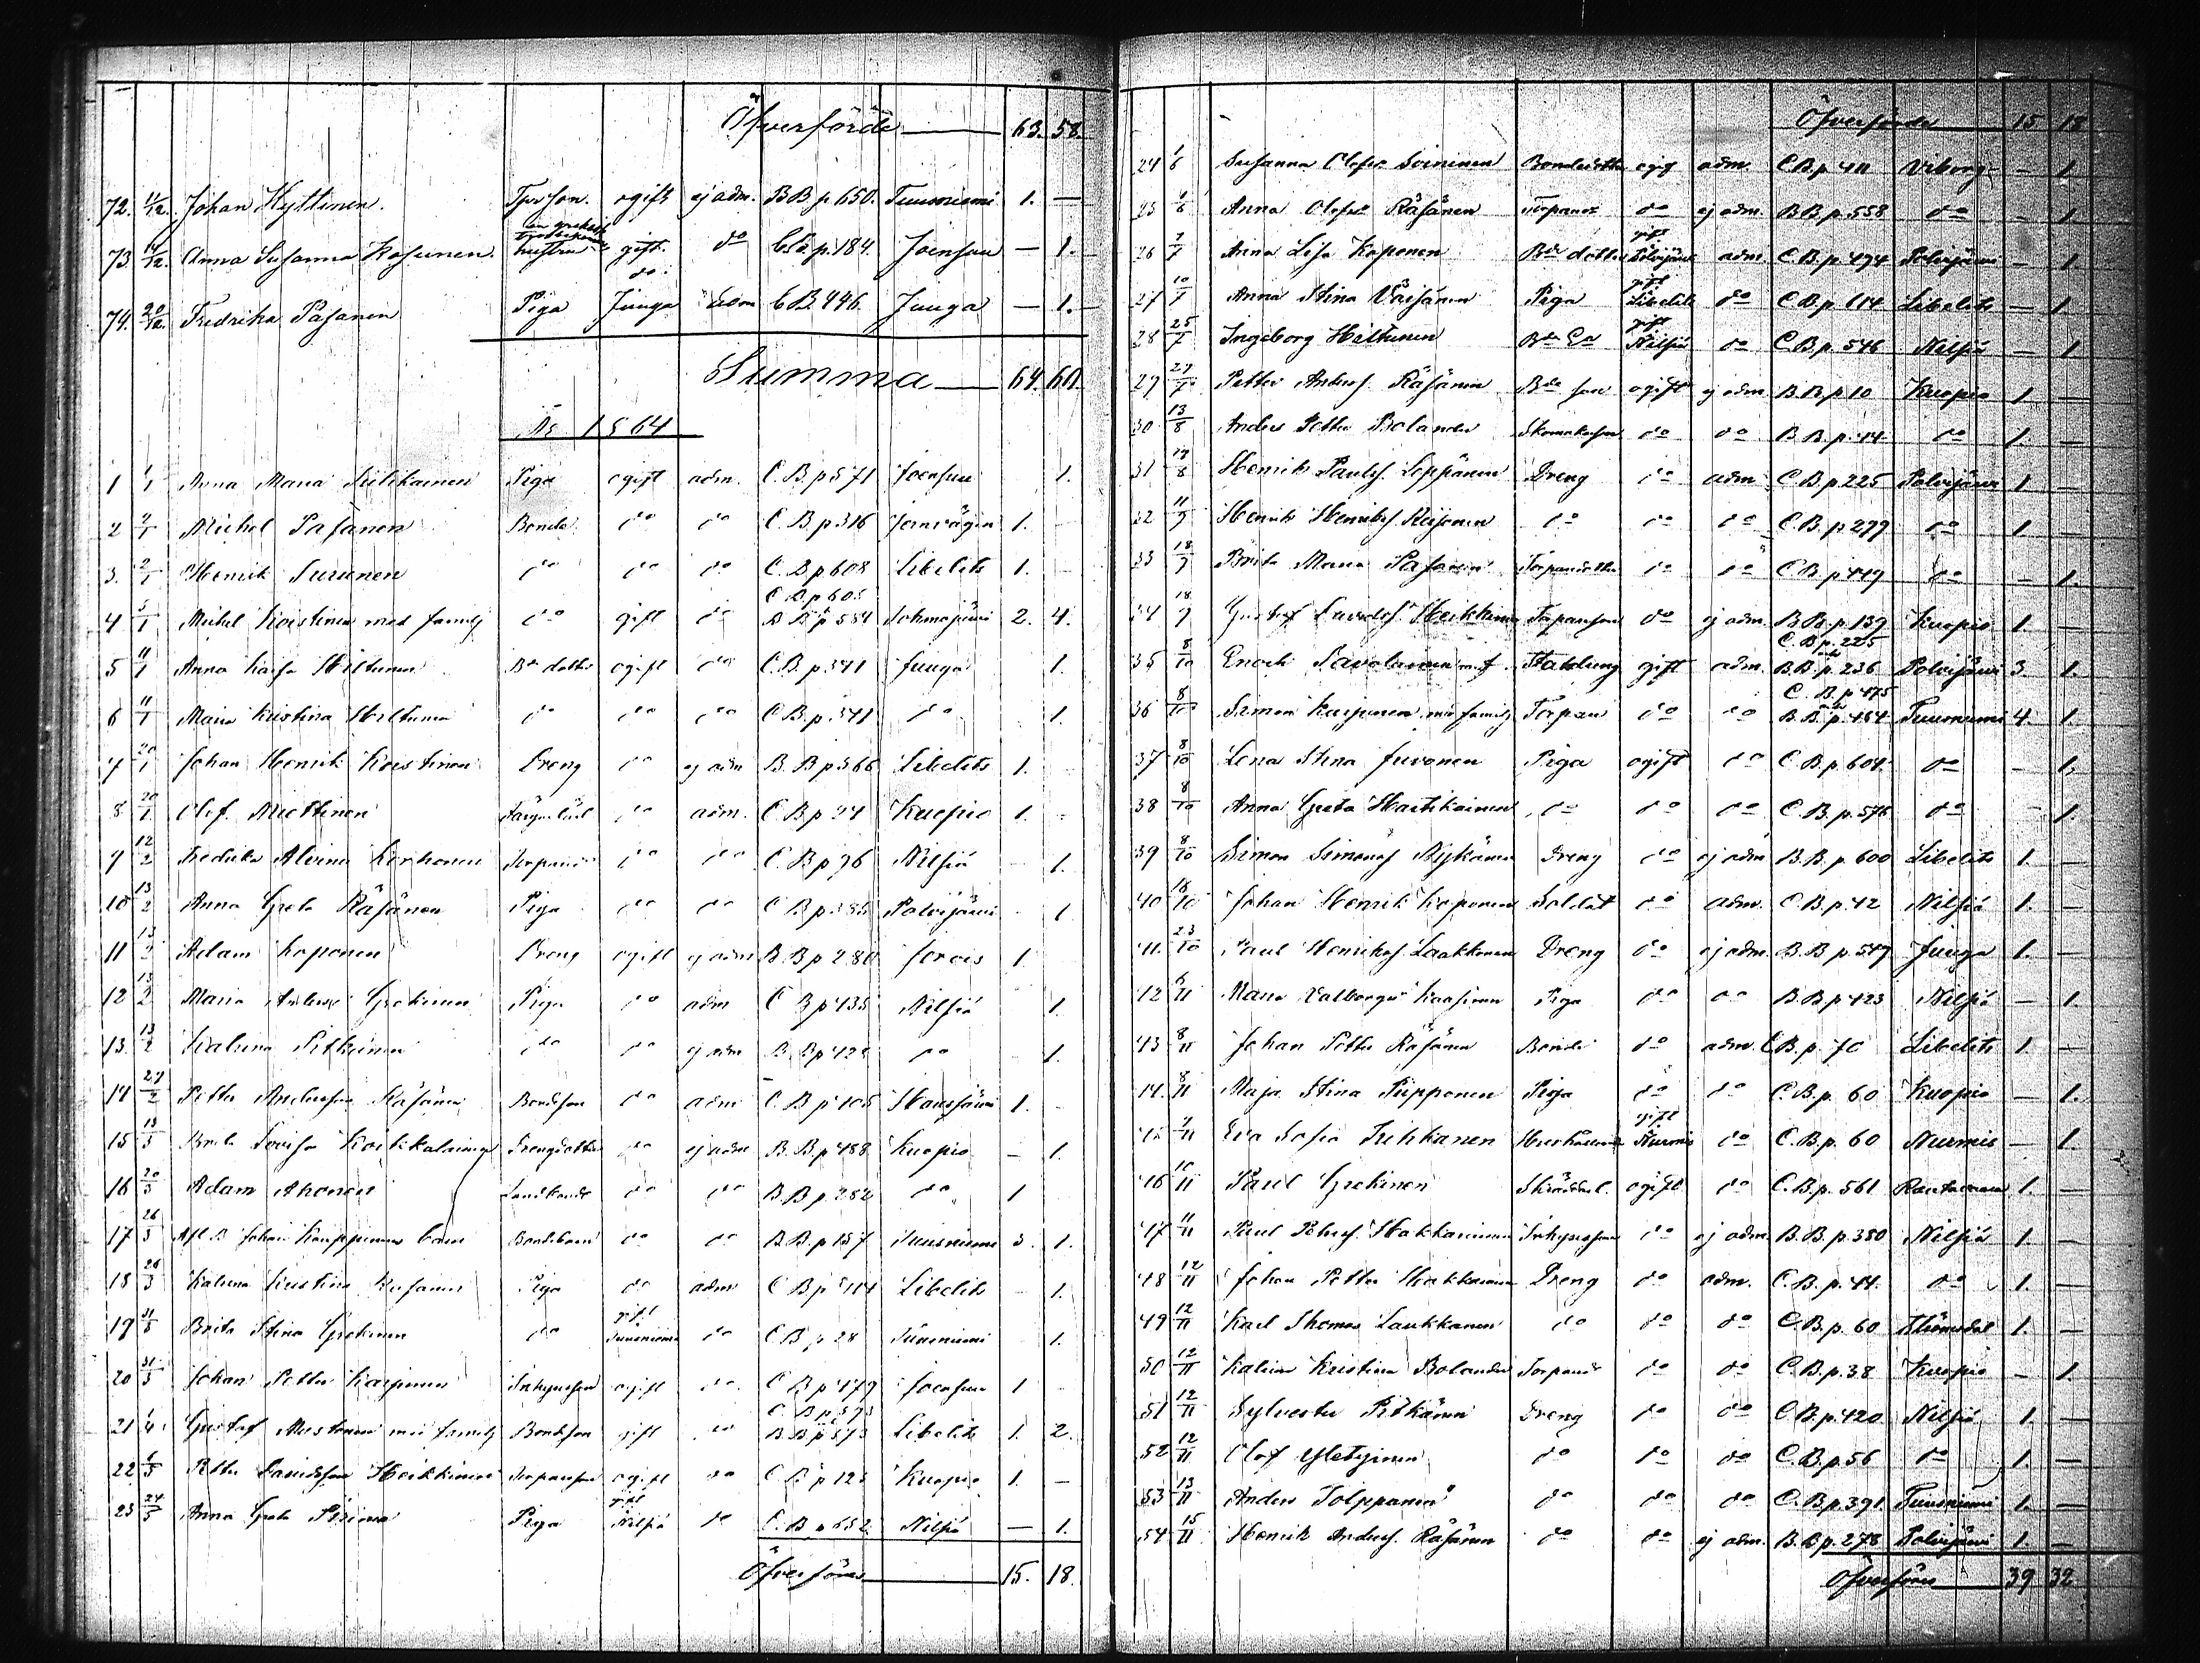 Öfverförde 63. 58.
72. 11/12. Johan Hyttinen. ogift ej adm. B.B. p. 650. Tuusniemi 1. —
73 14/12. Anna Susanna Kosunen. hustru gift. do p. 184. Joensuu — 1.
74. 20/12. Fredrika Pasanen Piga Juuga adm C.B. 446. Juuga — 1.
Summa 64. 60.
År 1864
1 1/1 Anna Maria Piga ogift adm. C.B. p 571 Joensuu 1.
2 2/1 Michel Pasanen Bonde do do C.B p 316 1.
3. 2/1 Henrik Turunen do do do C.B p 608 Libelits 1.
C.B. p 605
4 5/1 Michel Koistinen med familj do gift do B.B. p 554 2. 4.
5 11/1 Anna Kaisa Hiltunen Bde dotter ogift do C.B. p. 341 Juuga 1.
6 11/1 Maria Kristina Hiltunen do do do C.B. p. 341 do 1.
7 20/1 Johan Henrik Koistinen Dreng do ej adm B.B p 366 Libelits 1.
8 20/1 Olof Miettinen do adm. C.B p 24 Kuopio 1. -
9 12/2 Fredrika Alvina Korhonen do do C.B p 96 Nilsiä 1.
10 13/2 Anna Greta Räsänen Piga do do C.B p 385 Polvijärvi 1
11 13/2 Adam Koponen Dreng ogift ej adm B.B p 280 1.
12 13/2 Maria Grekinen Piga do adm C.B p 435 Nilsiä 1.
13. 13/2 Katrina Pitkänen do do ej adm B.B p 425 do 1.
14 27/2 Petter Andersson Räsänen Bondeson do adm C.B p 105 1.
15 13/3 Brita Lovisa Koikkalainen Drengdotter do ej adm B.B. p 488 Kuopio — 1.
16 20/3 Adam Ahonen do do B.B p 282 do 1
17 26/3 Johan Kauppinens barn Bondebarn do do B.B. p 157 Tuusniemi 3. 1.
18 26/3 Katrina Kristina Piga do adm C.B p 414 Libelits 1.
gift
19 31/3 Brita Stina Grekinen do Tuusniemi do C.B p 28 Tuusniemi 1.
20 31/3 Johan Petter Karjunen Inhyseson ogift do C.B p 479 Joensuu 1
C.B p 573
21 1/4 Gustaf Mustonen med familj Bondeson gift do B.B p 573 Libelits 1. 2.
22 6/5 Petter Davidsson Heikkinen Torpareson ogift do C.B p 123 Kuopio 1. —
gift
23 24/5 Anna Greta Piga Nilsiä do C.B p 652 Nilsiä — 1.
Öfverföres 15. 18.
Öfverförde 15 18
24 1/6 Susanna Olofsr Soininen Bondedotter ogift adm. C.B. p 411 Viborg — 1.
25 6/6 Anna Olofsr Räsänen do ej adm. B.B. p. 558 do — 1.
gift
26 7/7 Anna Lisa Koponen Bde dotter Polvijärvi adm. C.B. p 494 Polvijärvi — 1.
gift
27 10/7 Anna Stina Väisänen Piga Libelits do C.B. p 614 Libelits — 1
gift
28 25/7 Ingeborg Hiltunen Nilsiä do C.B. p. 546 Nilsiä — 1
29 27/7 Petter Andersf. Räsänen Bde son ogift ej adm B.B. p 10 Kuopio 1 —
30 13/8 Anders Petter Bolander Skomakareson do do B.B. p. 14 do 1. —
31 17/8 Henrik Paulsf. Leppänen Dreng do adm C.B. p 225 Polvijärvi 1 —
32 11/9 Henrik Henriksf. do do do C.B. p 299 do 1. —
33 18/9 Brita Maria Pasanen Torparedotter do do C.B. p 449 do — 1.
34 18/9 Gustaf Davidsf. Heikkinen Torpareson do ej adm. B.B. p. 139 Kuopio 1. —
C.B. p. 225
35 8/10 Enoch Savolainen m. f. gift adm. B.B. p. 236 Polvijärvi 3. 1.
C.B. p 475
36 8/10 Simon Karjunen med familj Torpare do do B.B. p. 454 Tuusniemi 4. 1.
37 8/10 Lena Stina Juvonen Piga ogift do C.B. p 604. do — 1.
38 8/10 Anna Greta Hartikainen do do do C.B. p. 576 do — 1.
39 8/10 Simon Simonsf. Nykänen Dreng do ej adm B.B. p. 600 Libelits 1. —
40 18/10 Johan Henrik Koponen Soldat do adm. C.B. p. 42 Nilsiä 1. —
41. 23/10 Paul Henriksf. Laakkonen Dreng do ej adm. B.B. p. 549 Juuga 1. —
42 6/11 Maria Valborg Piga do do B.B. p 423 Nilsiä — 1.
43 8/11 Johan Petter Räsänen Bonde do adm. C.B. p. 70 Libelits 1. —
44. 8/11 Maja Stina Piipponen Piga do do C.B. p. 60 Kuopio — 1.
gift
45 9/11 Eva Sofia Tuhkanen Nurmis do C.B. p. 60 Nurmis — 1.
46 10/11 Paul Grekinen ogift do C.B. p. 561 Rautavaara 1. —
47 11/11 Paul Petersf. Hakkarainen Inhyseson do ej adm. B.B. p. 380 Nilsiä 1. —
48 12/11 Johan Petter Hakkarainen Dreng do adm. C.B. p. 44. do 1. —
49 12/11 Karl Thomas Laukkanen do do do C.B. p. 60 1. —
50 12/11 Katrina Kristina Bolander do do C.B. p. 38 Kuopio — 1.
51 12/11 Sylvester Pitkänen Dreng do do C.B. p. 420 Nilsiä 1. —
52 12/11 Olof do do do C.B. p. 56 do 1. —
53 13/11 Anders Tolppanen do do do C.B. p. 391 Tuusniemi 1. —
54 15/11 Henrik Andersf. Räsänen do do ej adm. B.B. p. 278 Polvijärvi 1. —
Öfverföres 39 32